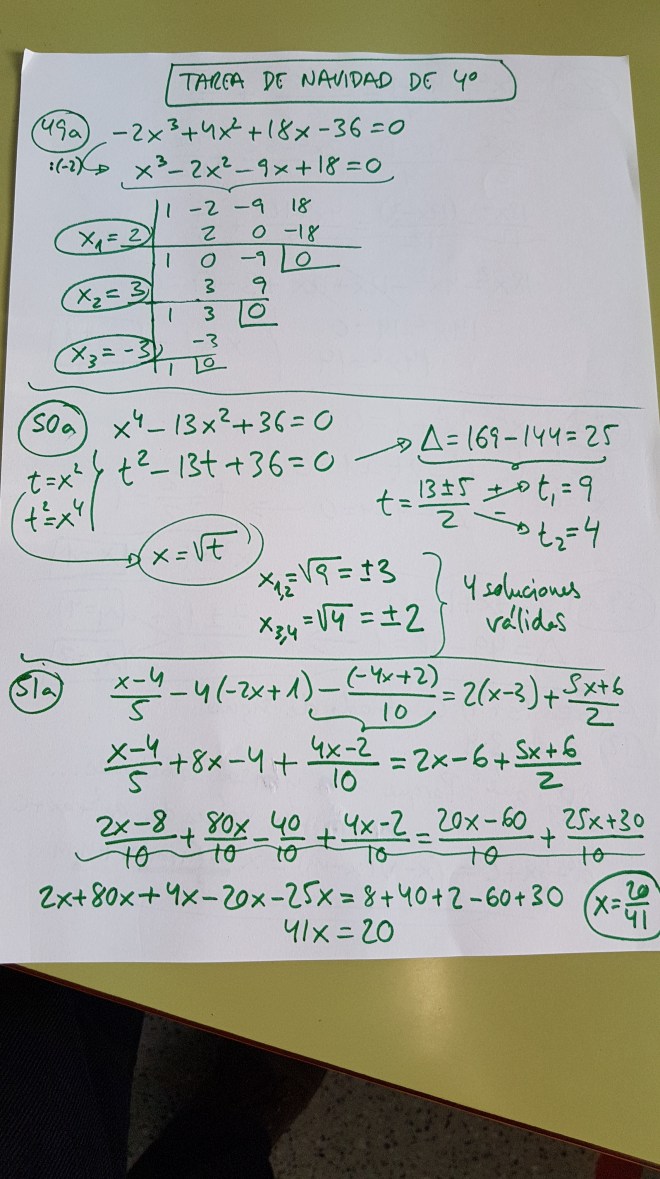 TAREA DE NAVIDAD DE 4º
49a -2x³+4x²+18x-36=0
:(-2) x³-2x²-9x+18=0
1 -2 -9 18
x₁=2 2 0 -18
1 0 -9 0
x₂=3 3 9
1 3 0
x₃=-3 -3
1 0
50a x⁴-13x²+36=0
t=x² t²-13t+36=0 → Δ=169-144=25
t²=x⁴
t=(13±5)/2 + → t₁=9
- → t₂=4
x=√t
x₁,₂=√9=±3
x₃,₄=√4=±2
4 soluciones
válidas
51a (x-4)/5 - 4(-2x+1) - (-4x+2)/10 = 2(x-3) + (5x+6)/2
(x-4)/5 + 8x-4 + (4x-2)/10 = 2x-6 + (5x+6)/2
(2x-8)/10 + 80x/10 - 40/10 + (4x-2)/10 = (20x-60)/10 + (25x+30)/10
2x+80x+4x-20x-25x=8+40+2-60+30
41x=20
x=20/41